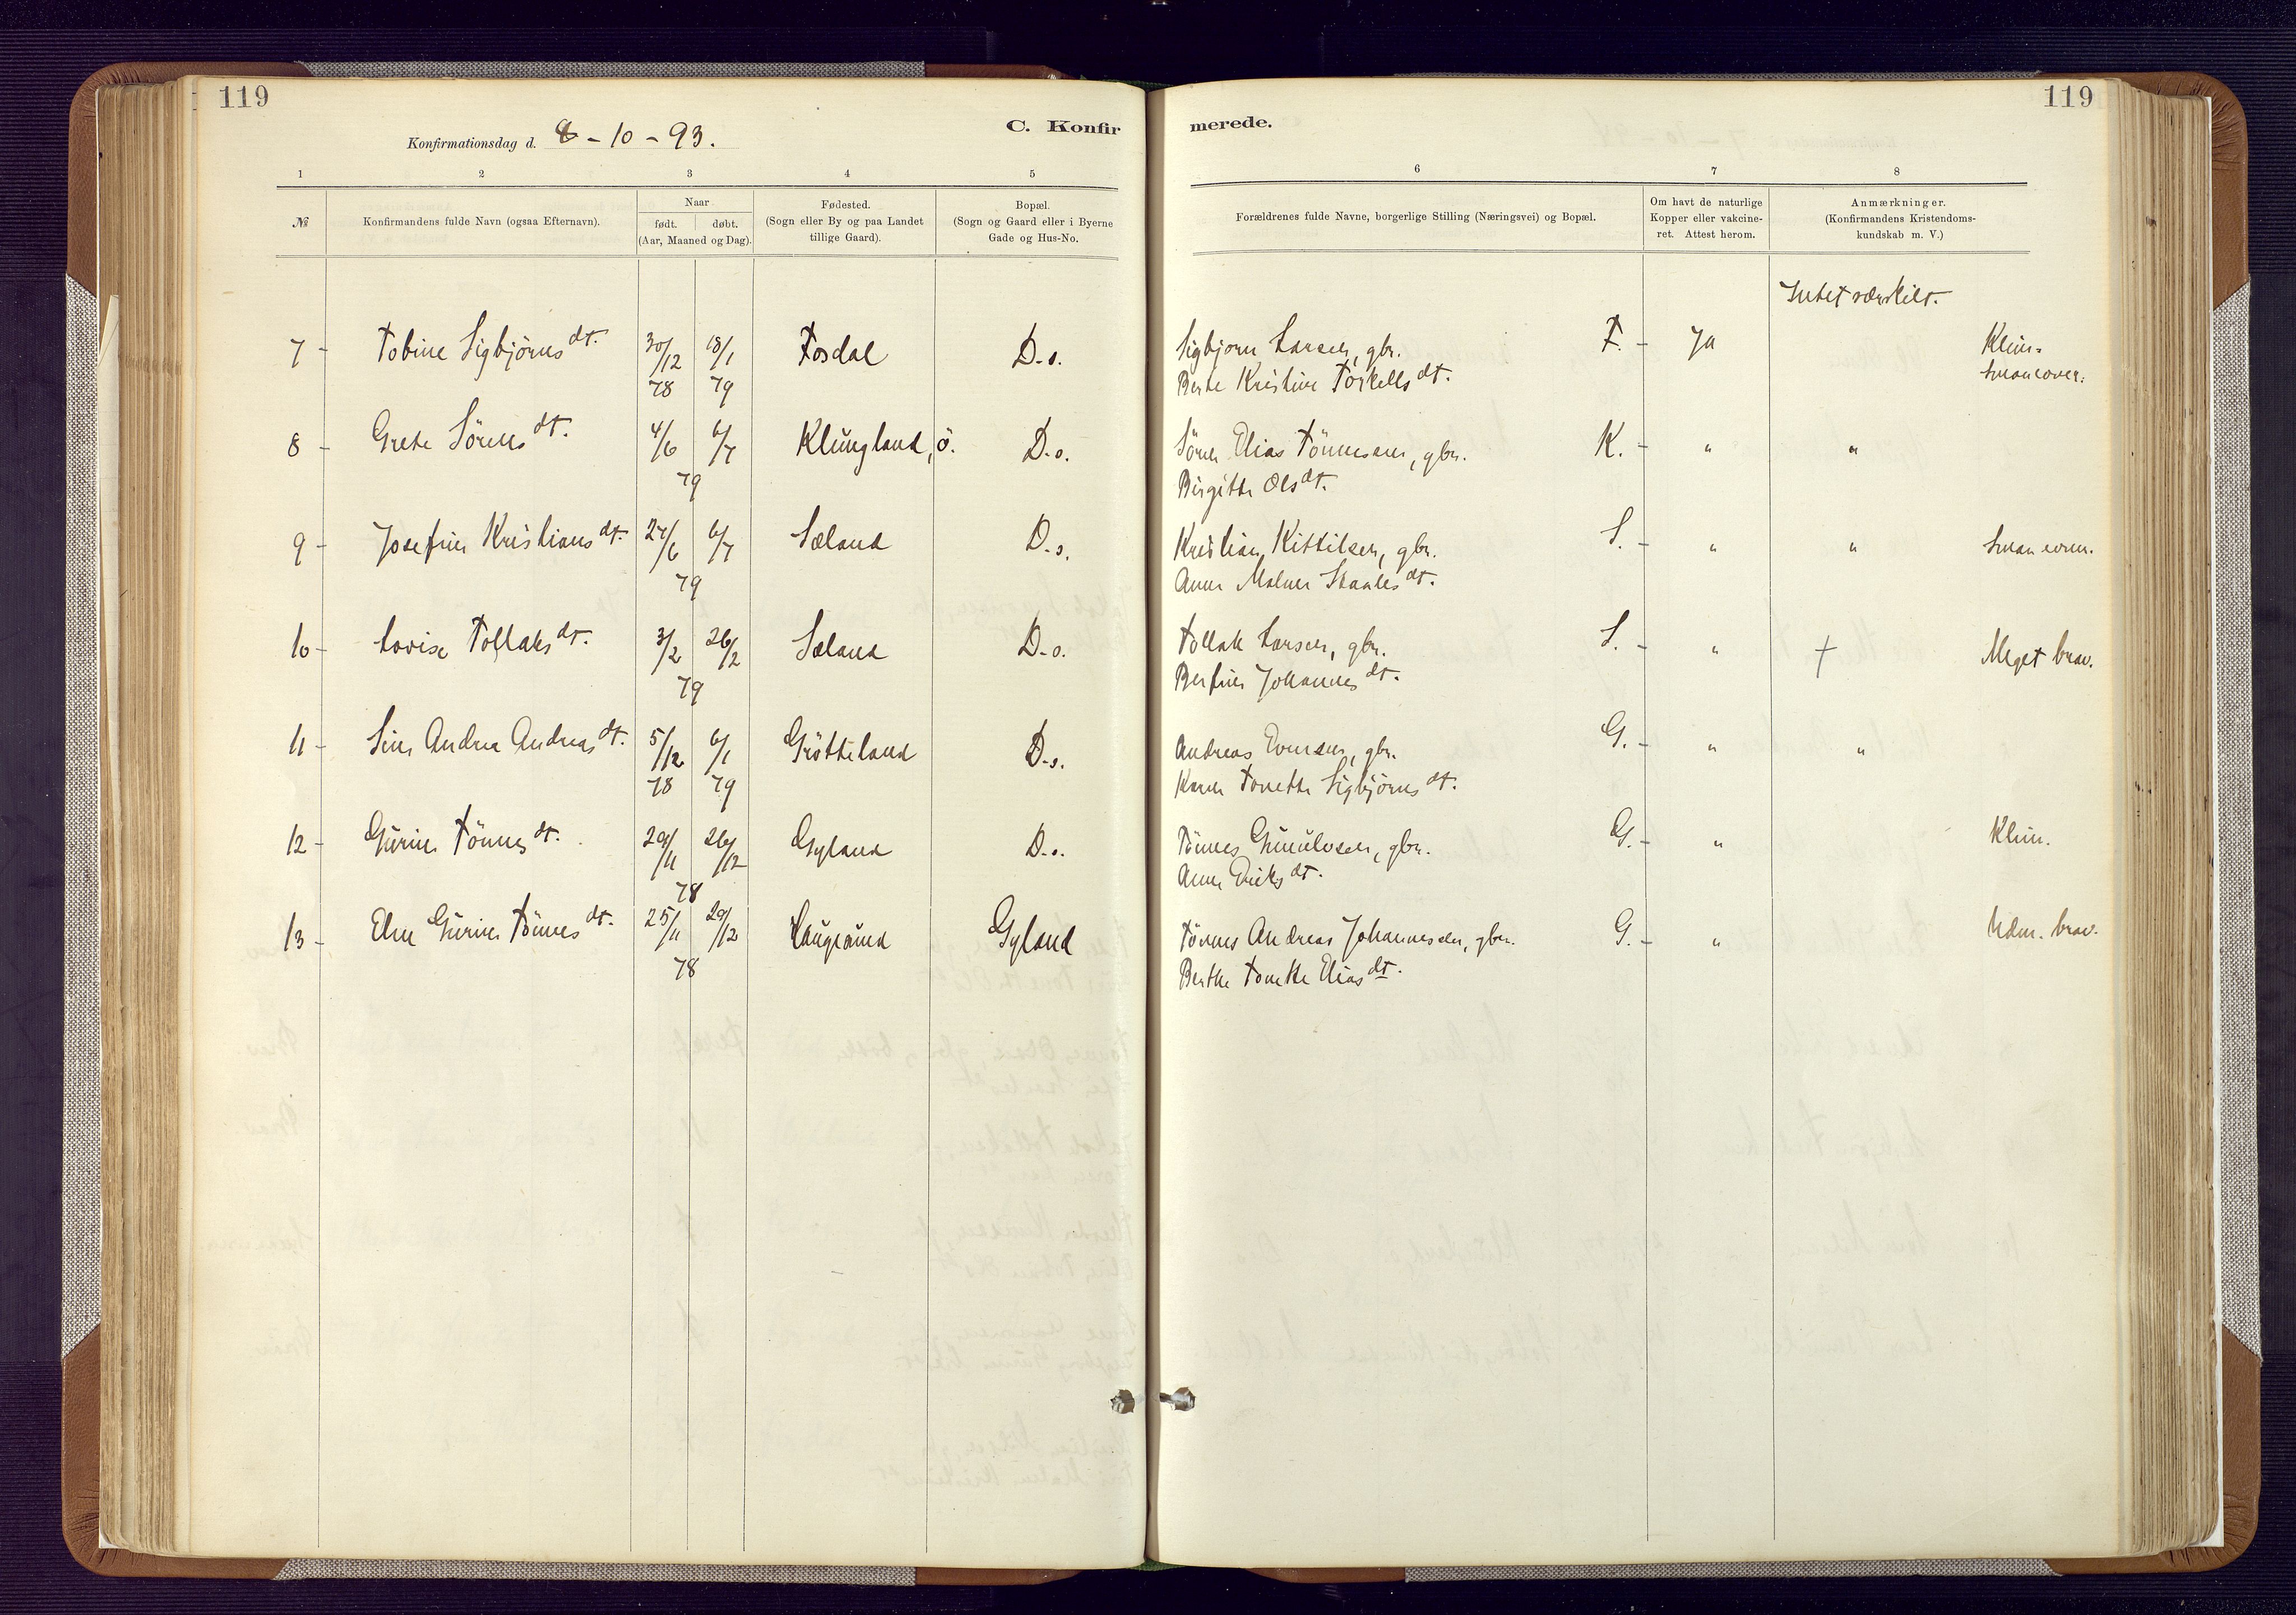 119
119
Konfirmationsdag d. 8 - 10 - 93.
C. Konfirmerede.
1 2 3 4 5 6 7 8
№
Konfirmandens fulde Navn (ogsaa Efternavn).
Naar
født. døbt.
(Aar, Maaned og Dag).
Fødested.
(Sogn eller By og paa Landet
tillige Gaard).
Bopæl.
(Sogn og Gaard eller i Byerne
Gade og Hus-No.
Forældrenes fulde Navne, borgerlige Stilling (Næringsvei) og Bopæl.
Om havt de naturlige
Kopper eller vakcine-
ret. Attest herom.
Anmærkninger.
(Konfirmandens Kristendoms-
kundskab m. V.)
Intet særskilt.
7 - Tobine Sigbjørns dt. 30/12 78 18/1 79 Fosdal D.o. Sigbjørn Larsen, gbr. F. - Ja
Berte Kristine Torkells dt.
8 - Grete Sørens dt. 4/6 6/7 79 Klungland, ö. D.o. Sören Elias Tönnesen, gbr. K. - " "
Birgitte Ols dt.
9 - Josefine Kristians dt. 27/6 6/7 79 Sæland D.o. Kristian Kittilsen, gbr. S. - " "
Anne Malene Staales dt.
10 - Lovise Tollaks dt. 3/2 26/2 79 Sæland D.o. Tollak Larsen, gbr. S. - " † Meget brav.
Berfine Johannes dt.
11 - Sine Andrea Andreas dt. 5/12 78 6/1 79 Grötteland D.o. Andreas Evensen, gbr. G. - " "
Karen Tonette Sigbjörns dt.
12 - Gurine Tönnes dt. 29/11 26/12 78 Gyland D.o. Tönnes Gunulvsen, gbr. G. - "
Anne Eriks dt.
13 - Elen Gurine Tönnes dt. 25/11 29/12 78 Haugland Gyland Tönnes Andreas Johannesen, gbr. G. - " Udm. brav.
Berthe Tonette Elias dt.